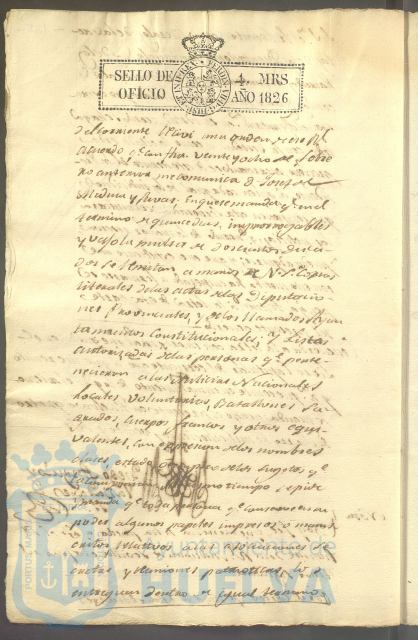 SELLO DE OFICIO
4. MRS. AÑO 1826
HISPANIARUM
del corriente recivi una orden de ese Rl
Acuerdo, qe con fha. veinte y ocho de Febre
ro anterior me comunica Dn Josef de
Medina y Rivas, En que se manda qe en el
termino de quince dias, improrrogables
y vajo la multa de doscientos duca
dos se remitan a manos de V.S. Copias
literales de las actas de las Diputacio
nes Provinciales, y de los llamados Ayun
tamientos Constitucionales; y Listas
autorizadas de las personas qe perte
necieron a las Milicias Nacionales
Locales, Voluntarios, Batallones Sa
grados, Cuerpos francos y otros equi
valentes, con expresion de los nombres
clases, estado, y empleo de los sugetos qe
mo tiempo
qe toda persona qe conserve en su
poder algunos papeles impresos o manus
critos relativos a las asociaciones se
cretas y reuniones patrioticas, los
entreguen dentro de igual termino
Ayuntamiento de
HUELVA
PORTUS MARIS